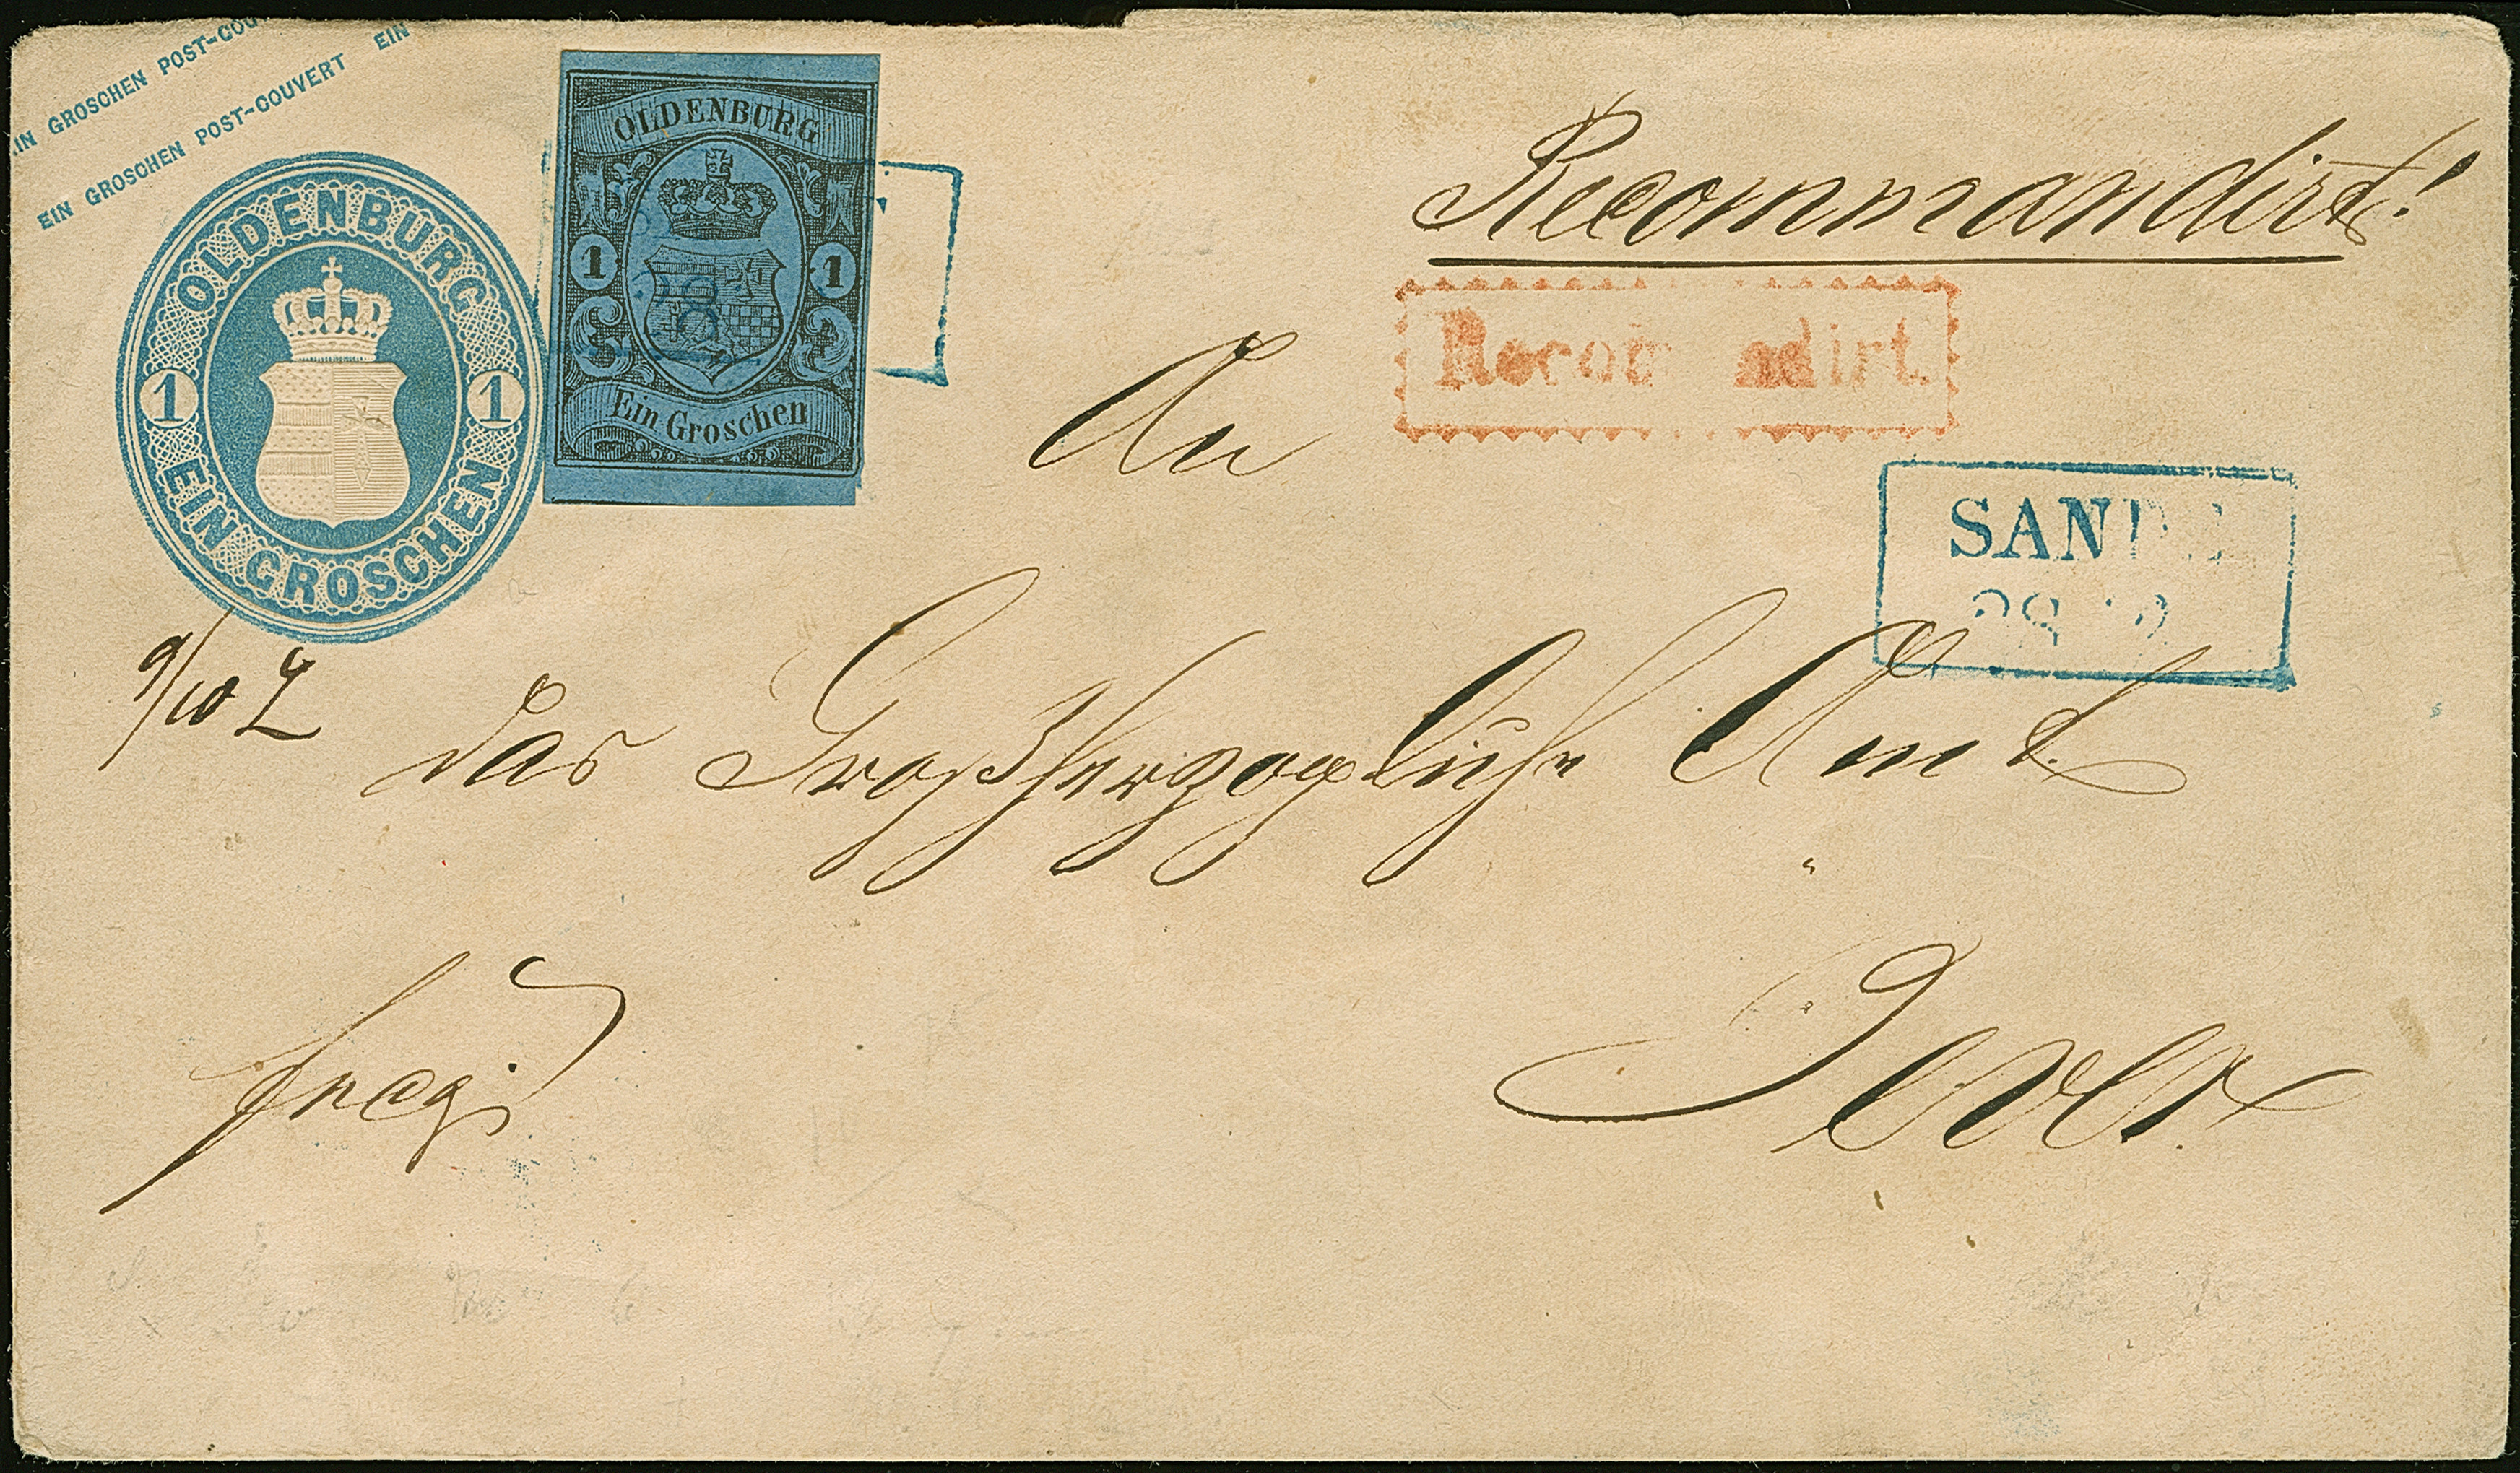 IN GROSCHEN POST-COU
EIN GROSCHEN POST-COUVERT EIN
OLDENBURG
1 1
EIN GROSCHEN
OLDENBURG
1 1
Ein Groschen
Recommandirt!
Recom andirt.
An
SANDE
das Großherzogliche Amt.
Jever.